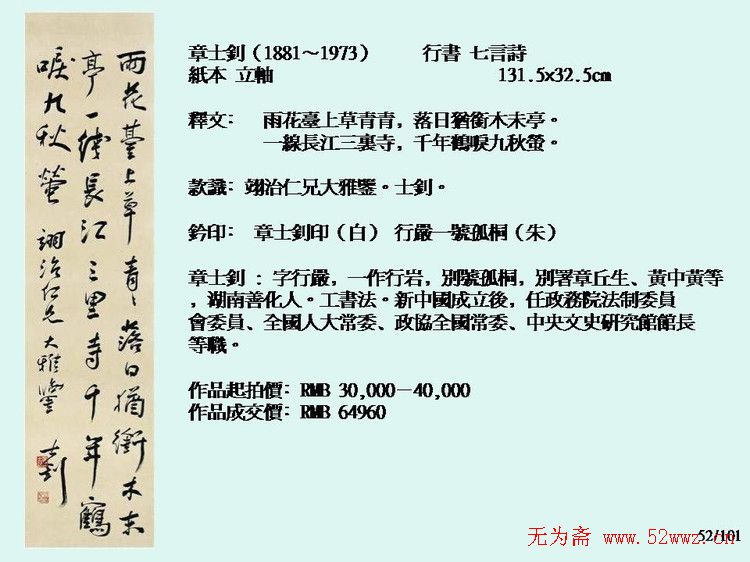 雨花臺上草青〻落日猶銜木末
亭一綫長江三里寺千年鶴
唳九秋螢 翊治仁兄大雅鑒 士釗
章士釗（1881～1973） 行書 七言詩
紙本 立軸 131.5x32.5cm
釋文： 雨花臺上草青青，落日猶銜木未亭。
一線長江三裏寺，千年鶴唳九秋螢。
款識：翊治仁兄大雅鑒。士釗。
鈐印： 章士釗印（白） 行嚴一號孤桐（朱）
章士釗 : 字行嚴，一作行岩，別號孤桐，別署章丘生、黃中黃等
，湖南善化人。工書法。新中國成立後，任政務院法制委員
會委員、全國人大常委、政協全國常委、中央文史研究館館長
等職。
作品起拍價：RMB 30,000－40,000
作品成交價：RMB 64960
52/101
无为斋 www.52wwz.cn